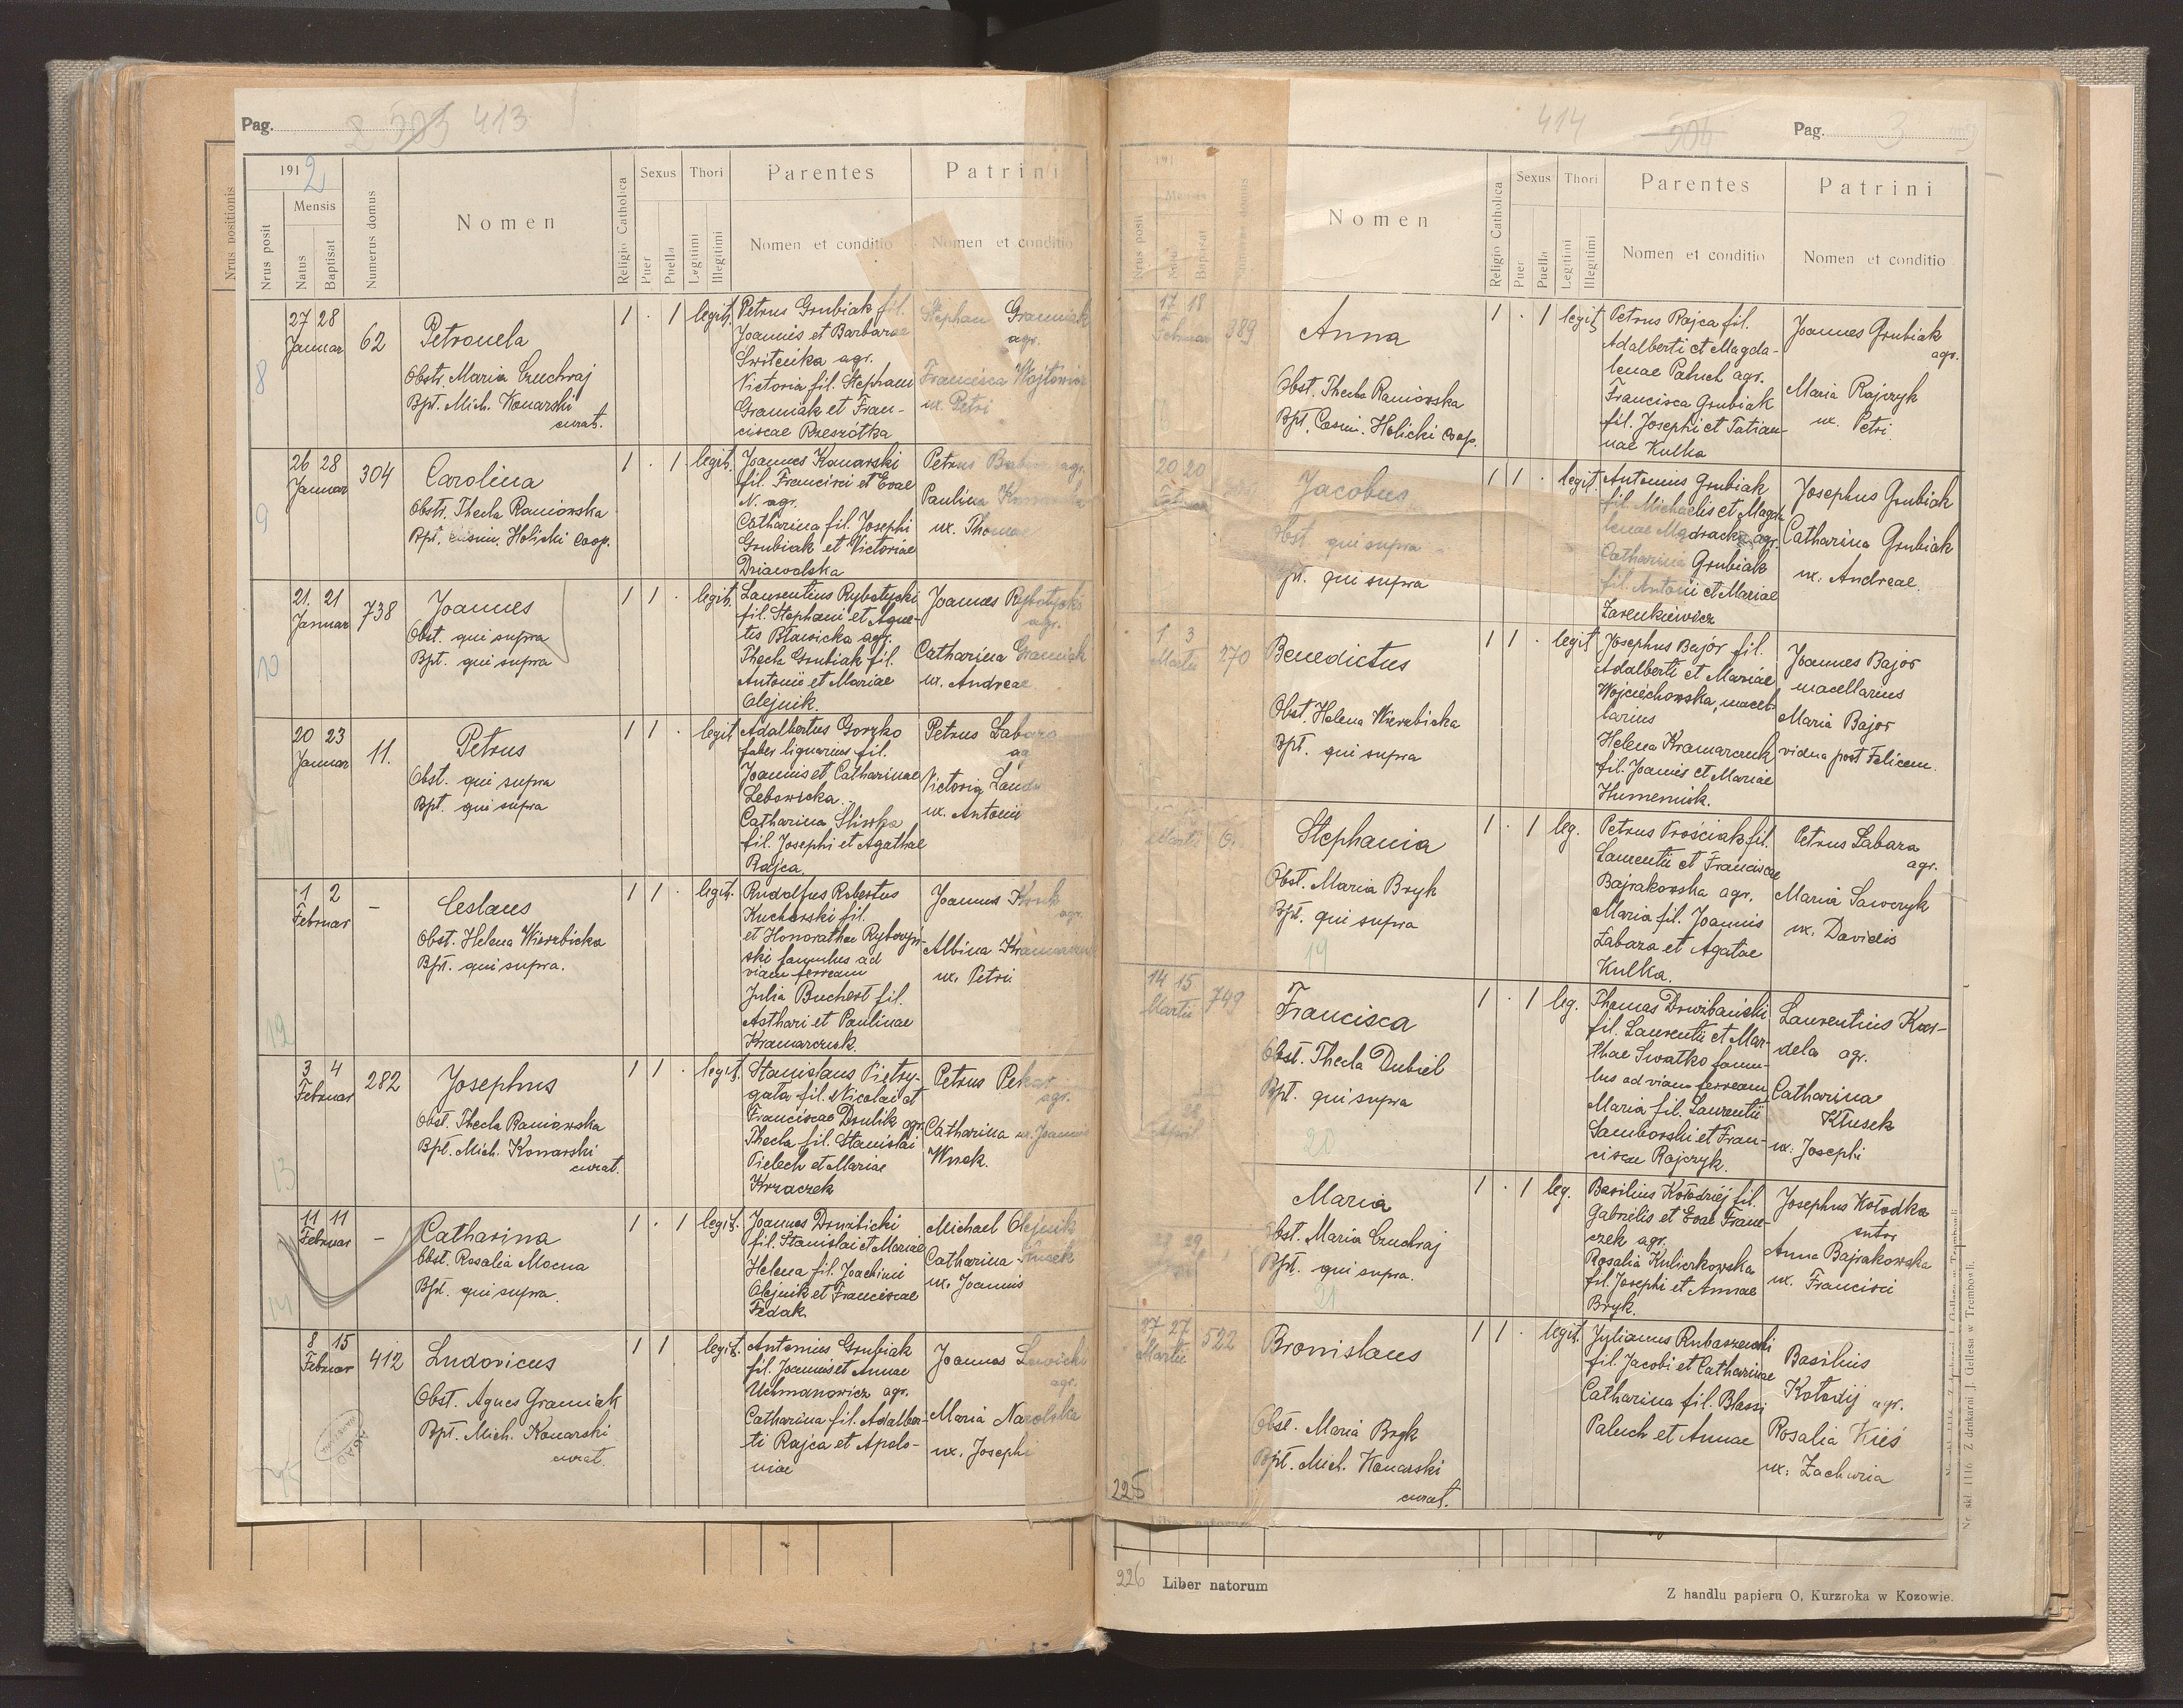 Pag. 413
1912
Nrus positionis
Nrus posit
Mensis
Natus
Baptisat
Numerus domus
Nomen
Religio Catholica
Sexus
Puer
Puella
Thori
Legitimi
Illegitimi
Parentes
Nomen et conditio
Patrini
Nomen et conditio
8
27 28
Januar
62
Petronela
Obstr. Maria Czuchraj
Bpt. Mich. Konarski
curat.
1 . 1 legit.
Petrus Grubiak fil.
Joannis et Barbarae
Switenka agr.
Victoria fil. Stephani
Graniak et Fran-
ciscae Rzeszótka
Stephan Graniak
agr.
Francisca Wojtowicz
ux. Petri
9
26 28
Januar
304
Carolina
Obstr. Thecla Raniowska
Bpt. Casim. Holicki coop.
1 . 1 legit.
Joannes Konarski
fil. Francisci et Evae
N. agr.
Catharina fil. Josephi
Grubiak et Victoriae
Petrus agr.
Paulina
ux. Thomae
10
21. 21
Januar
738
Joannes
Obst. qui supra
Bpt. qui supra
1 1 . legit.
Laurentius Rybotycki
fil. Stephani et Agne-
tis agr.
Thecla Grubiak fil.
Antonii et Mariae
Olejnik.
Joannes Rybotycki
agr.
Catharina Graniak
ux. Andreae
20 23
Januar
11.
Petrus
Obst. qui supra
Bpt. qui supra
1 1 . legit
Adalbertus Gorzko
faber lignarius fil.
Joannis et Catharinae
Lebowicka.
Catharina Sliwka
fil. Josephi et Agathae
Rajca.
Petrus Zabara
Victoria
ux. Antonii
12
1 2
Februar
-
Ceslaus
Obst. Helena Wierzbicka
Bpt. qui supra.
1 1 . legit.
Rudolfus Robertus
Kucharski fil.
et Honorathae
famulus ad
viam ferream
Julia Buchert fil.
et Paulinae
Kramarczuk.
Joannes
agr.
Albina Kramarczuk
ux. Petri
13
3 4
Februar
282
Josephus
Obst. Thecla Raniowska
Bpt. Mich. Konarski
curat.
1 1 . legit.
Stanislaus Pietry-
gata fil. Nicolai et
Franciscae agr.
Thecla fil. Stanislai
Pielech et Mariae
Krzaczek
Petrus
agr.
Catharina ux. Joannis
Wnek.
14
11 11
Februar
-
Catharina
Obst. Rosalia Mocna
Bpt. qui supra.
1 . 1 legit.
Joannes
fil. Stanislai et Mariae
Helena fil. Joachimi
Olejnik et Franciscae
Fedak
Michael Olejnik
Catharina
ux. Joannis
8 15
Februar
412
Ludovicus
Obst. Agnes Graniak
Bpt. Mich. Konarski
curat.
1 1 legit.
Antonius Grubiak
fil. Joannis et Annae
Uchmanowicz agr.
Catharina fil. Adalber-
ti Rajca et Apolo-
niae
Joannes
agr.
Maria Narolska
ux. Josephi
414
Pag. 3
191
Nrus posit
Mensis
Baptisat
Numerus domus
Nomen
Religio Catholica
Sexus
Puer
Puella
Thori
Legitimi
Illegitimi
Parentes
Nomen et conditio
Patrini
Nomen et conditio
17 18
Februar
389
Anna
Obst. Thecla Raniowska
Bpt. Casim. Holicki coop.
1 . 1 legit
Petrus Rajca fil.
Adalberti et Magda-
lenae Paluch agr.
Francisca Grubiak
fil. Josephi et Tatian-
nae Kulka
Joannes Grubiak
agr.
Maria Rajczyk
ux. Petri
20 20
Jacobus
Obst qui supra
Bpt. qui supra
1 1 . legit
Antonius Grubiak
fil. Michaelis et Magda
lenae agr.
Catharina Grubiak
fil. Antonii et Mariae
Zarenkiewicz
Josephus Grubiak
Catharina Grubiak
ux. Andreae
1 3
Martii
270
Benedictus
Obst. Helena Wierzbicka
Bpt. qui supra
1 1 . legit
Josephus Bajor fil.
Adalberti et Mariae
Wojciechowska, macel-
larius
Helena Kramarczuk
fil. Joannis et Mariae
Humeniuk.
Joannes Bajor
macellarius
Maria Bajor
vidua post Felicem.
Martii
Stephania
Obst. Maria Bryk
Bpt. qui supra
19
1 . 1 leg.
Petrus Prościak fil.
Laurentii et Franciscae
Bajrakowska agr.
Maria fil. Joannis
Zabara et Agatae
Kulka.
Petrus Zabara
agr.
Maria Sawczyk
ux. Davidis
14 15
Martii
749
Francisca
Obst. Thecla Dubiel
Bpt. qui supra
20
1 . 1 leg.
Thomas
fil. Laurentii et Mar-
thae Swatko famu-
lus ad viam ferream
Maria fil. Laurentii
Samborski et Fran-
ciscae Rajczyk.
Laurentius Kur-
dela agr.
Catharina
Kłusek
ux. Josephi
April
Maria
Obst. Maria Czuchraj
Bpt. qui supra.
21
1 . 1 leg.
Basilius Kołodziej fil.
Gabrielis et Evae Fran-
czek agr.
Rosalia Kulczkowska
fil. Josephi et Annae
Bryk.
Josephus Kołodka
sutor
Anna Bajrakowska
ux. Francisci
27 27
Martii
522
Bronislaus
Obst. Maria Bryk
Bpt. Mich. Konarski
curat.
1 1 . legit.
Julianus
fil. Jacobi et Catharinae
Catharina fil. Blasii
Paluch et Annae
Basilius
Kołodij agr.
Rosalia Kieś
ux. Zacharia
225
226 Liber natorum
Z handlu papieru O. Kurzroka w Kozowie.
Z drukarni J. Gellesa w Trembowli.